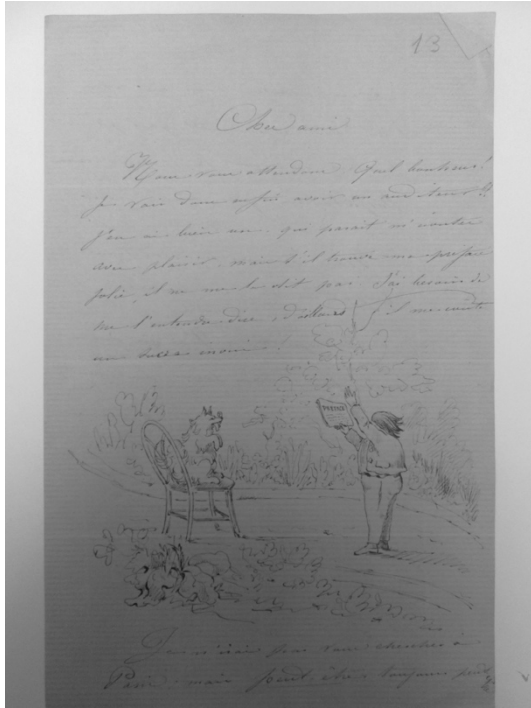 13
Cher ami
Nous vous attendons. Quel bonheur!
Je vais donc enfin avoir un auditeur!!
J'en ai bien un qui parait m'écouter
avec plaisir mais s'il trouve ma préface
jolie, il ne me le dit pas. J'ai besoin de
me l'entendre dire, d'ailleurs il me
un inouï!
PREFACE
Je n'irai pas vous chercher à
mais peut être toujours